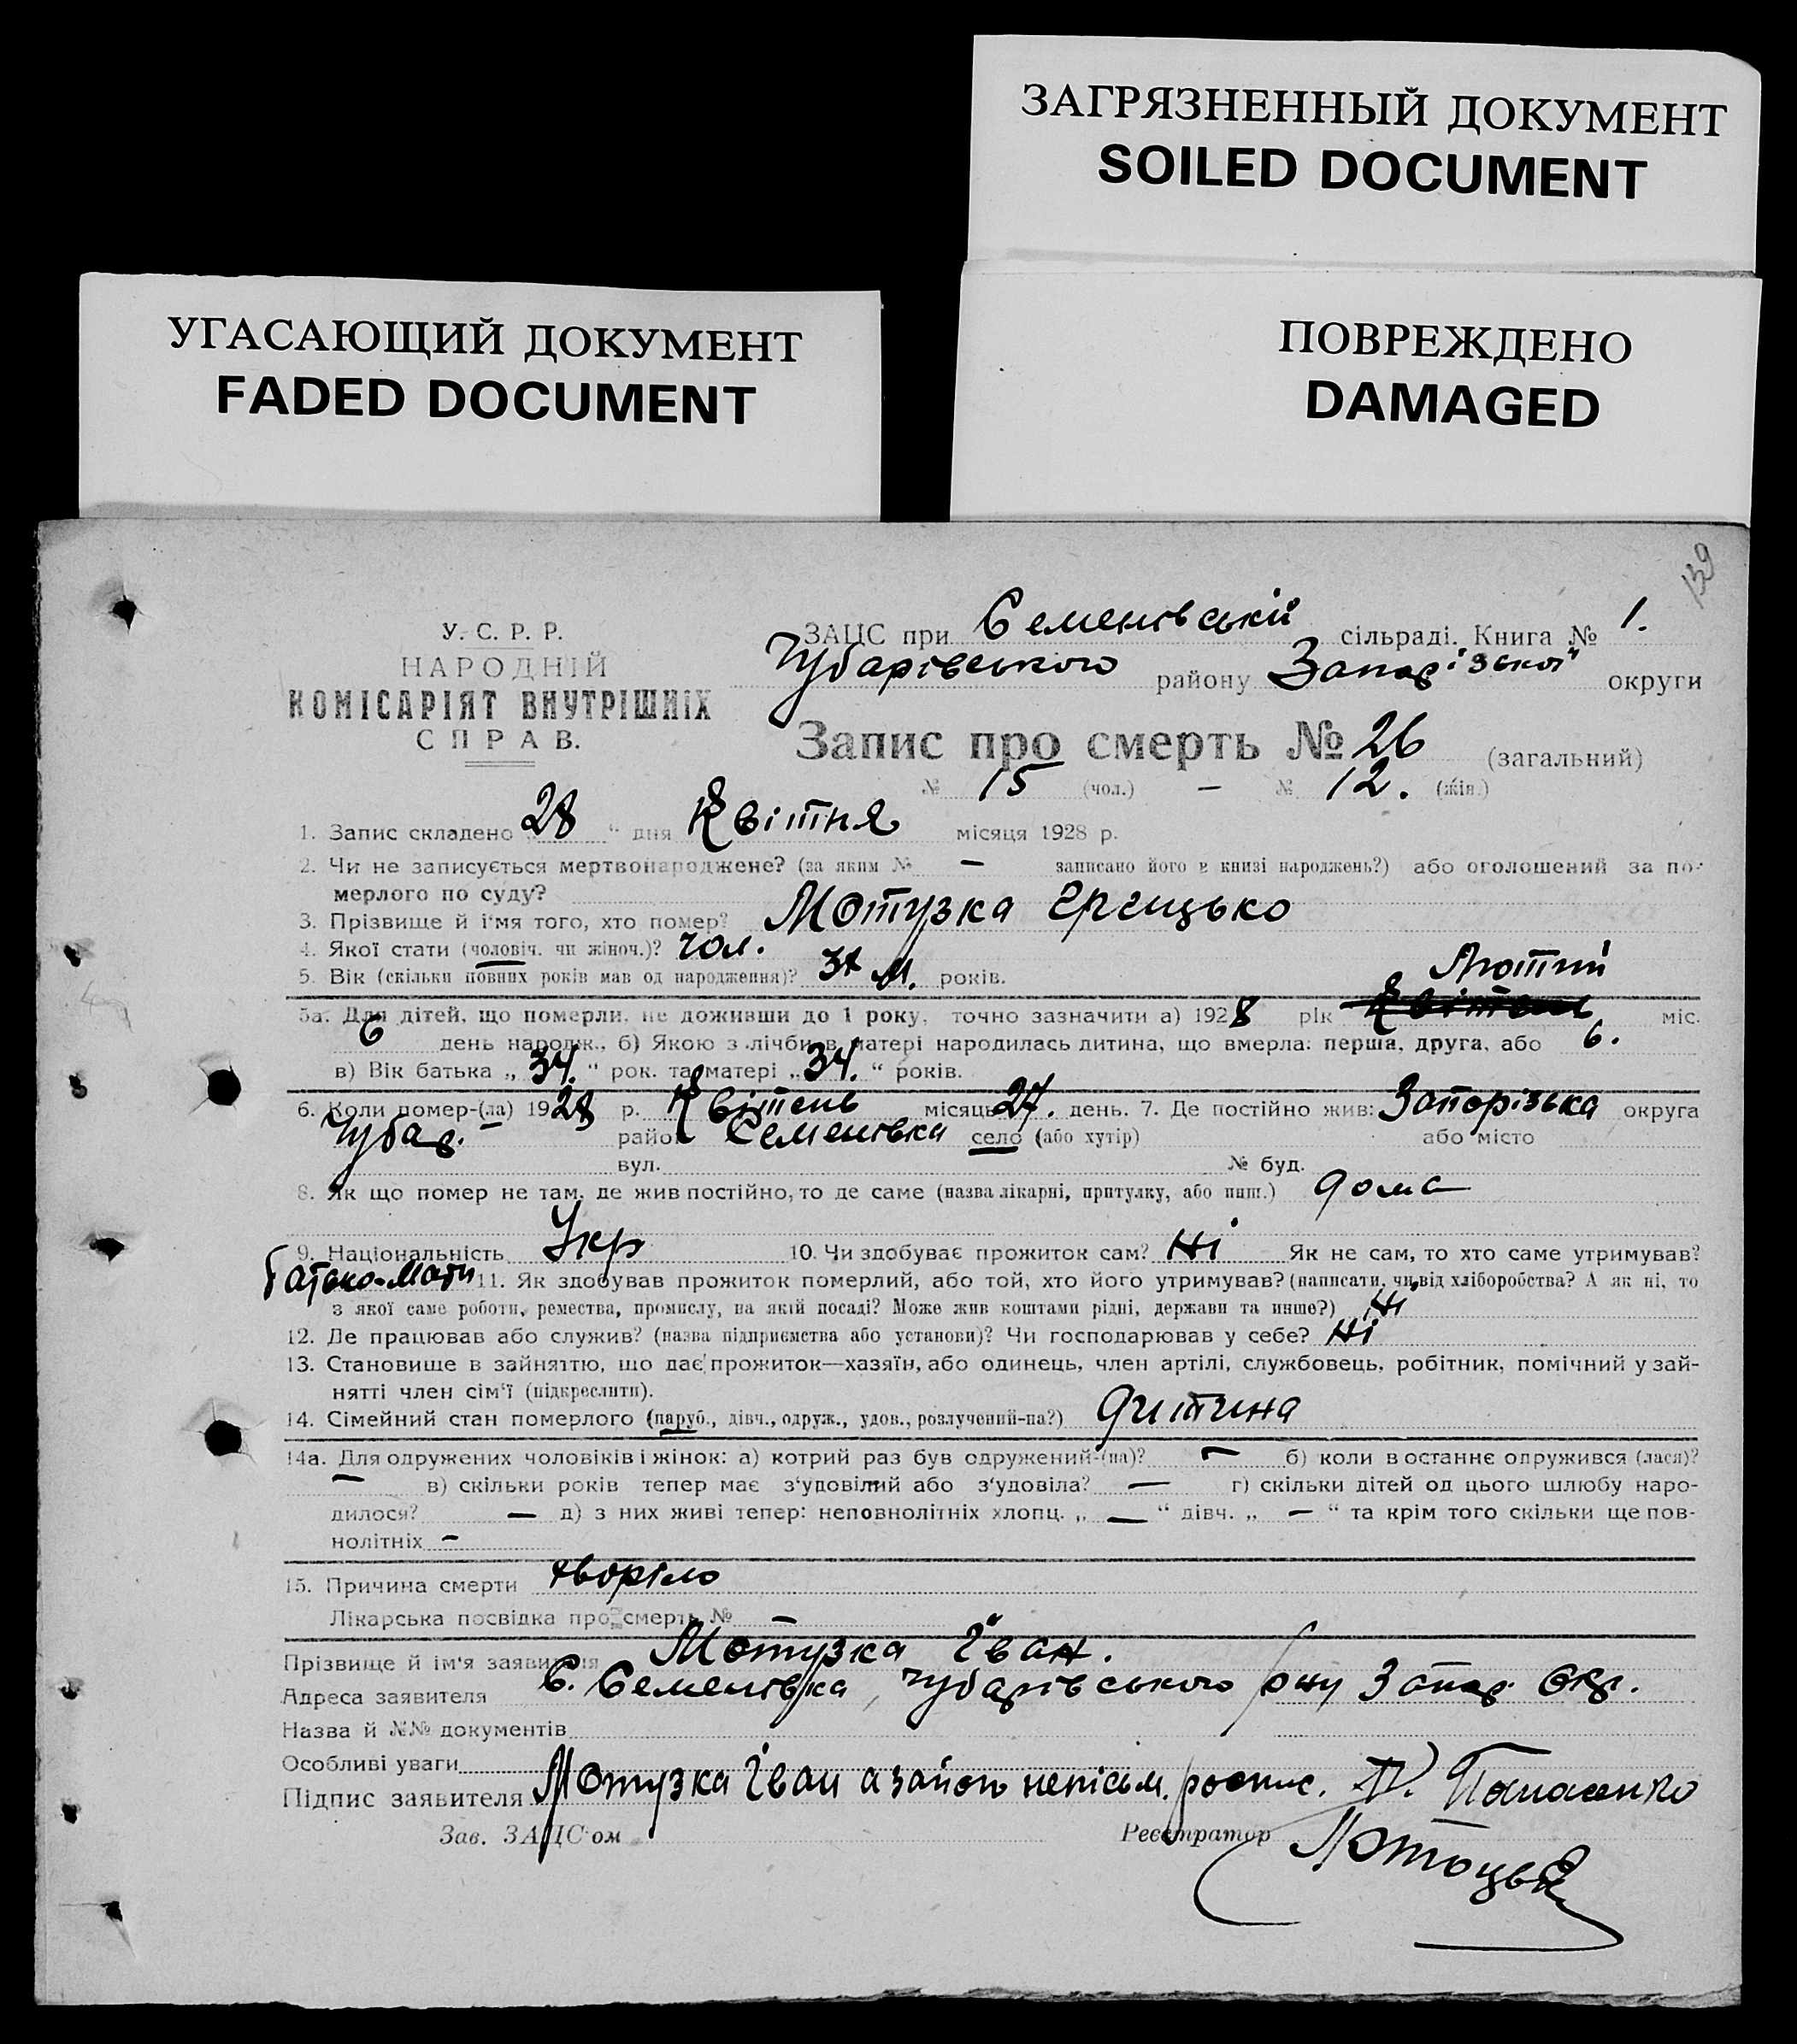 ЗАГРЯЗНЕННЫЙ ДОКУМЕНТ
SOILED DOCUMENT
УГАСАЮЩИЙ ДОКУМЕНТ
FADED DOCUMENT
ПОВРЕЖДЕНО
DAMAGED
139
У. С. Р. Р.
НАРОДНІЙ
КОМІСАРІЯТ ВНУТРІШНІХ
СПРАВ.
ЗАЦС при Семенівській сільраді. Книга № 1.
Чубарівського району Запорізької округи
Запис про смерть № 26 (загальний)
№ 15 (чол.) — № 12. (жін.)
1. Запис складено „28“ дня Квітня місяця 1928 р.
2. Чи не записується мертвонароджене? (за яким № — записано його в книзі народжень?) або оголошений за по-
мерлого по суду?
3. Прізвище й ім'я того, хто помер? Мотузка Грицько
4. Якої стати (чоловіч. чи жіноч.)? чол.
5. Вік (скільки повних років мав од народження)? М. років.
Лютий
5а. Для дітей, що померли, не доживши до 1 року, точно зазначити а) 1928 рік Квітень міс.
6 день народж., б) Якою з лічби в матері народилась дитина, що вмерла: перша, друга, або 6.
в) Вік батька „34.“ рок. та матері „34.“ років.
6. Коли помер-(ла) 1928 р. Квітень місяць 27. день. 7. Де постійно жив: Запорізька округа
Чубар. район Семенівка село (або хутір) або місто
вул. № буд.
8. Як що помер не там, де жив постійно, то де саме (назва лікарні, притулку, або инш.) дома
9. Національність Укр 10. Чи здобуває прожиток сам? Ні Як не сам, то хто саме утримував?
Батько-Мати 11. Як здобував прожиток померлий, або той, хто його утримував? (написати, чи від хліборобства? А як ні, то
з якої саме роботи, ремества, промислу, на якій посаді? Може жив коштами рідні, держави та инше?) Ні
12. Де працював або служив? (назва підприємства або установи)? Чи господарював у себе? Ні
13. Становище в зайняттю, що дає прожиток—хазяїн, або одинець, член артілі, службовець, робітник, помічний у зай-
нятті член сім'ї (підкреслити).
14. Сімейний стан померлого (паруб., дівч., одруж., удов., розлучений-на?) Дитина
14а. Для одружених чоловіків і жінок: а) котрий раз був одружений-(на)? — б) коли в останнє одружився (лася)?
— в) скільки років тепер має з'удовілий або з'удовіла? — г) скільки дітей од цього шлюбу наро-
дилося? — д) з них живі тепер: неповнолітніх хлопц. „—“ дівч. „—“ та крім того скільки ще пов-
нолітніх —
15. Причина смерти хворіло
Лікарська посвідка про смерть № —
Прізвище й ім'я заявителя Мотузка Іван.
Адреса заявителя С. Семенівка, Чубарівського р-ну Запор. Окр.
Назва й №№ документів
Особливі уваги
Підпис заявителя Мотузка Іван а за його непісьм. роспис. Панасенко
Зав. ЗАЦС'ом Реєстратор